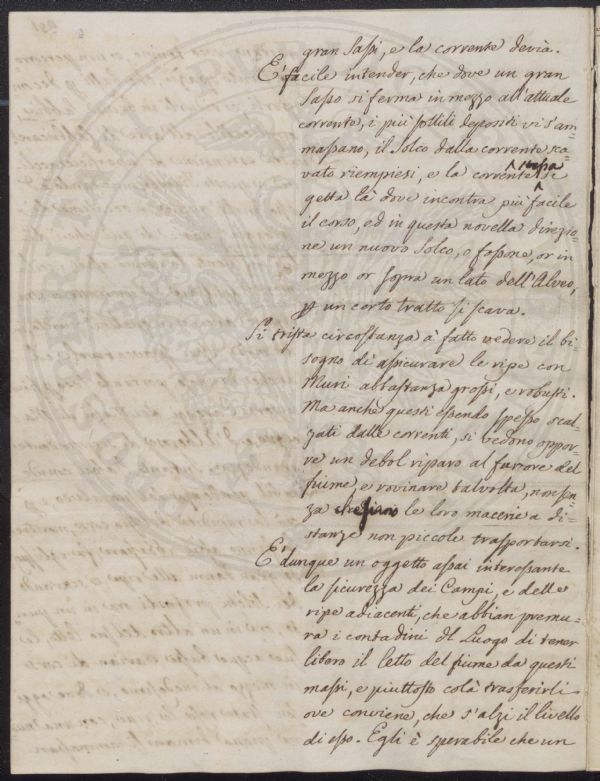 gran Sassi, e la corrente devia.
E' facile intender, che dove un gran
Sasso si ferma in mezzo all'attuale
corrente, i più sottili depositi vi s'am=
massano, il Solco dalla corrente sca=
vato riempiesi, e la corrente stessa si
getta là dove incontra più facile
il corso, ed in questa novella direzio=
ne un nuovo Solco, o fossone, or in
mezzo or sopra un lato dell'Alveo,
per un certo tratto si scava.
Sì trista circostanza à fatto vedere il bi=
sogno di assicurare le ripe con
Muri abbastanza grossi, e robusti.
Ma anche questi essendo spesso scal=
zati dalle correnti, si vedono oppor=
re un debol riparo al furore del
fiume, e rovinare talvolta, non sen=
za le loro macerie a di=
stanze non piccole trasportarsi.
E' dunque un oggetto assai interessante
la sicurezza dei Campi, e delle
ripe adiacenti, che abbian premu=
ra i contadini del Luogo di tener
libero il letto del fiume da questi
massi, e piuttosto colà trasferirli
ove conviene, che s'alzi il livello
di esso. Egli è sperabile che un